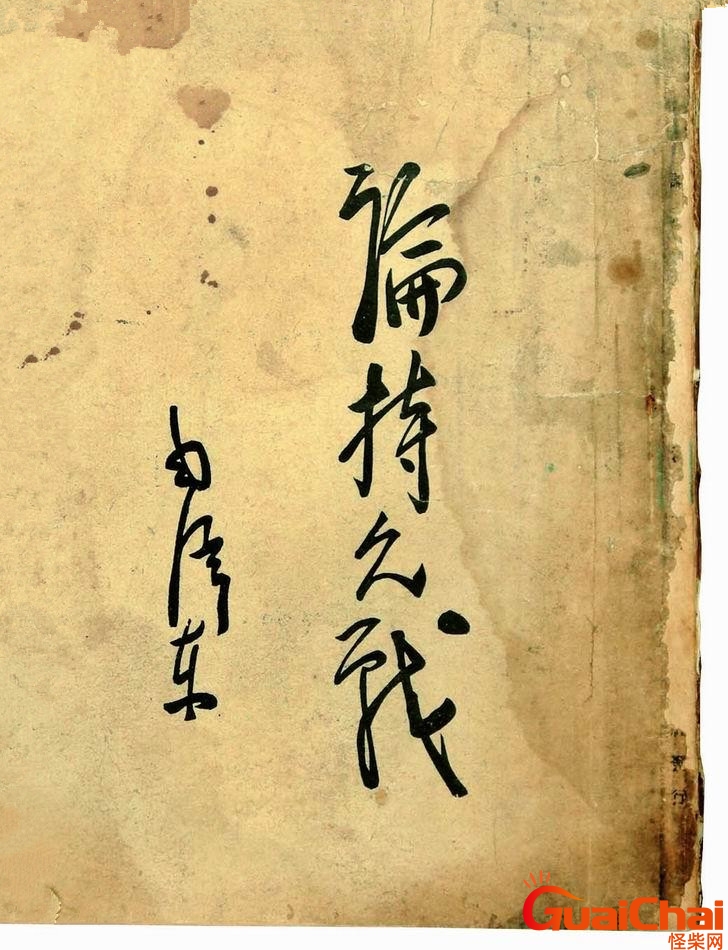 論持久戰
毛泽东
行
GuaiChai
怪柴网